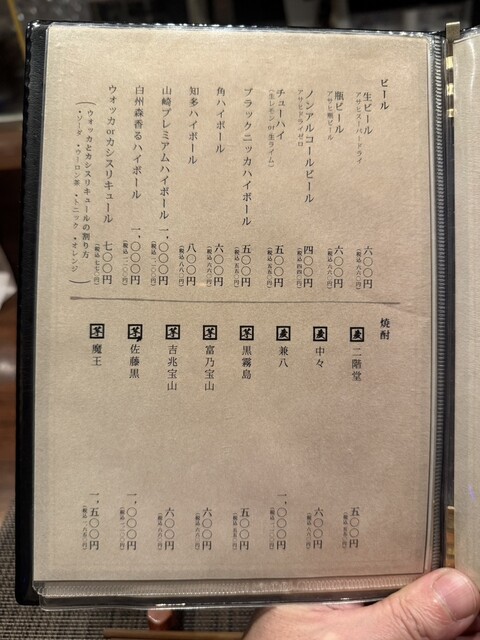 ビール
生ビール 六〇〇円
アサヒスーパードライ (税込 六六〇円)
瓶ビール 六〇〇円
アサヒ瓶ビール (税込 六六〇円)
ノンアルコールビール 四〇〇円
アサヒドライゼロ (税込 四四〇円)
チューハイ 五〇〇円
(生レモン or 生ライム) (税込 五五〇円)
ブラックニッカハイボール 五〇〇円
(税込 五五〇円)
角ハイボール 六〇〇円
(税込 六六〇円)
知多ハイボール 八〇〇円
(税込 八八〇円)
山崎プレミアムハイボール 一、〇〇〇円
(税込 一、一〇〇円)
白州森香るハイボール 一、〇〇〇円
(税込 一、一〇〇円)
ウオッカorカシスリキュール 七〇〇円
(税込 七七〇円)
ウオッカとカシスリキュールの割り方
・ソーダ ・ウーロン茶 ・トニック ・オレンジ
焼酎
麦 二階堂 五〇〇円
(税込 五五〇円)
麦 中々 六〇〇円
(税込 六六〇円)
麦 兼八 一、〇〇〇円
(税込 一、一〇〇円)
芋 黒霧島 五〇〇円
(税込 五五〇円)
芋 富乃宝山 六〇〇円
(税込 六六〇円)
芋 吉兆宝山 六〇〇円
(税込 六六〇円)
芋 佐藤黒 一、〇〇〇円
(税込 一、一〇〇円)
芋 魔王 一、五〇〇円
(税込 一、六五〇円)